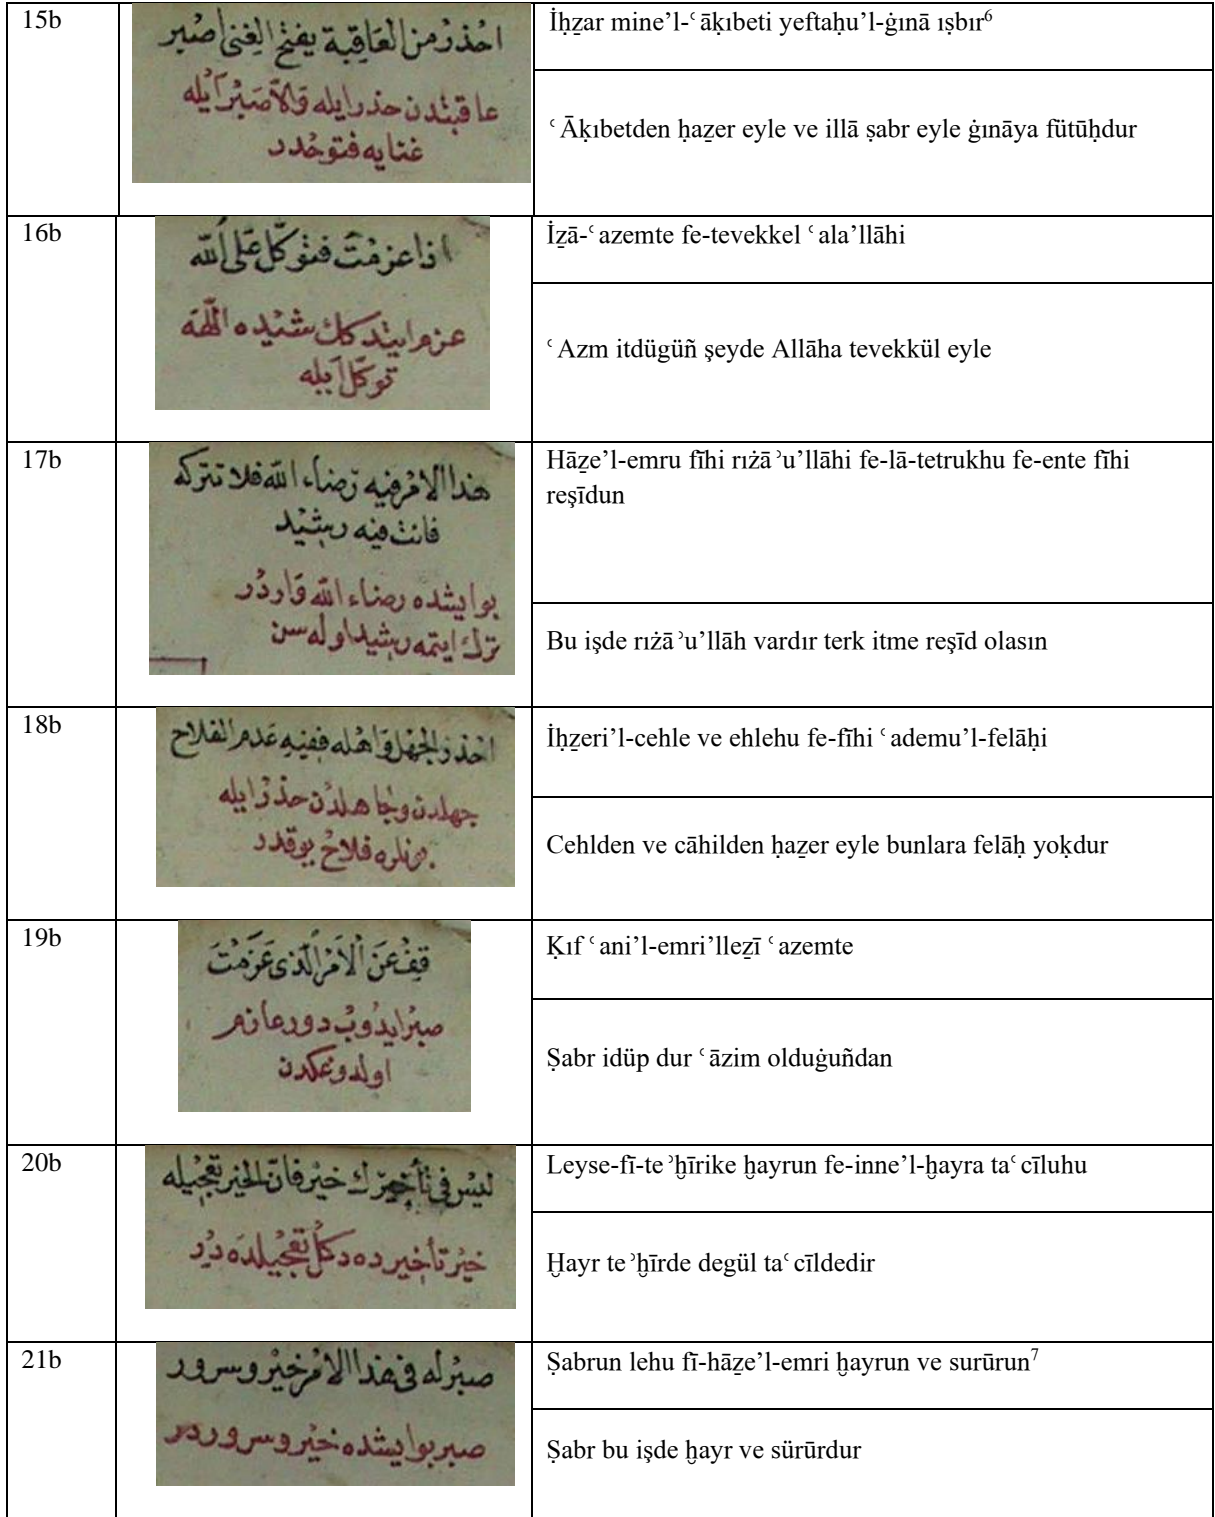 15b
احْذَرْ مِنَ الْعَاقِبَة يفتح الغِنىٰ اصْبر
عاقبتدن حذر ايله وَالّا صَبْر ايله
غنايه فتوحْدر
İḥẕar mine’l-ʿāḳıbeti yeftaḥu’l-ġınā ıṣbır⁶
ʿĀḳıbetden ḥaẕer eyle ve illā ṣabr eyle ġınāya fütūḥdur
16b
اذا عزمْتَ فتوكّل عَلَى اللّه
عزم ايتدكك شيْده اللّهه
توكّل ايله
İẕā-ʿazemte fe-tevekkel ʿala’llāhi
ʿAzm itdügüñ şeyde Allāha tevekkül eyle
17b
هذا الامْر فيه رضاء اللّه فلا تتركه
فانت فيه رشيْد
بو ايشده رضاء اللّه وَاردُر
ترك ايتمه رشيد اوله سن
Hāẕe’l-emru fīhi rıżāʾu’llāhi fe-lā-tetrukhu fe-ente fīhi
reşīdun
Bu işde rıżāʾu’llāh vardır terk itme reşīd olasın
18b
احْذر الجَهْل وَاهْله ففيْهِ عَدم الفلاح
جهلدن وجاهلدن حذر ايله
بونلره فلاحْ يوقدر
İḥẕeri’l-cehle ve ehlehu fe-fīhi ʿademu’l-felāḥi
Cehlden ve cāhilden ḥaẕer eyle bunlara felāḥ yoḳdur
19b
قِفْ عَنِ الْاَمْرِ الَّذى عَزَمْتَ
صبْر ايدُوبْ دور عازم
اولدوغكدن
Ḳıf ʿani’l-emri’lleẕī ʿazemte
Ṣabr idüp dur ʿāzim olduġuñdan
20b
ليْس فى تأخيْرك خيْر فانّ الخيْر تعْجيْله
خيْر تأخيرده دكُل تعْجيْلده دِر
Leyse-fī-teʾḫīrike ḫayrun fe-inne’l-ḫayra taʿcīluhu
Ḫayr teʾḫīrde degül taʿcīldedir
21b
صبْر له فى هٰذا الامْر خيْر وسرور
صبر بو ايشده خيْر وسروردر
Ṣabrun lehu fī-hāẕe’l-emri ḫayrun ve surūrun⁷
Ṣabr bu işde ḫayr ve sürūrdur